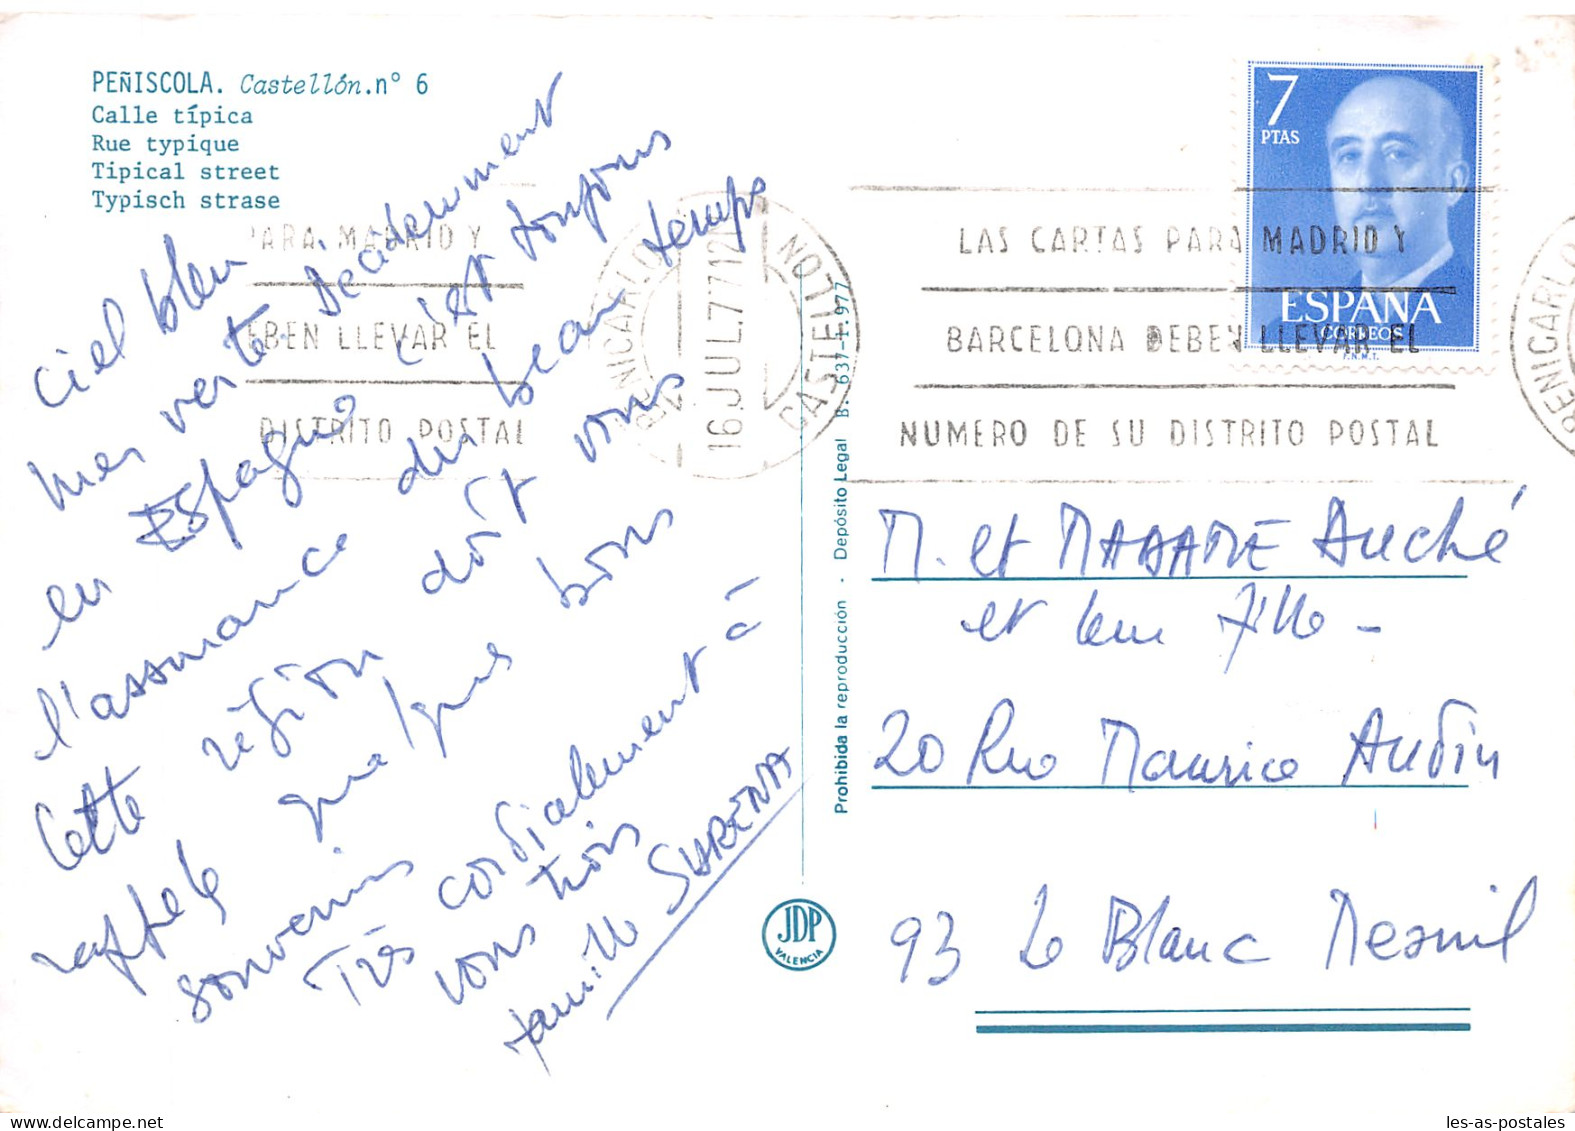 PEÑISCOLA. Castellón.n° 6
Calle típica
Rue typique
Tipical street
Typisch strase
ciel bleu
mer verte. Décidemment
en Espagne c'est toujours
l'assurance du beau temps
Cette région doit vous
rappeler quelques bons
souvenirs
Très cordialement à
vous trois
famille SURENA
'ARA MADRID Y
EBEN LLEVAR EL
DISTRITO POSTAL
BENICARLO
16 JUL 77 12
CASTELLON
LAS CARTAS PARA MADRID Y
BARCELONA DEBEN LLEVAR EL
NUMERO DE SU DISTRITO POSTAL
BENICARLO
7
PTAS
ESPAÑA
CORREOS
F.N.M.T.
Prohibida la reproducción · Depósito Legal B. 637-1.977
JDP
VALENCIA
M. et MADAME Auché
et leur fille -
20 Rue Maurice Audin
93 Le Blanc Mesnil
les-as-postales